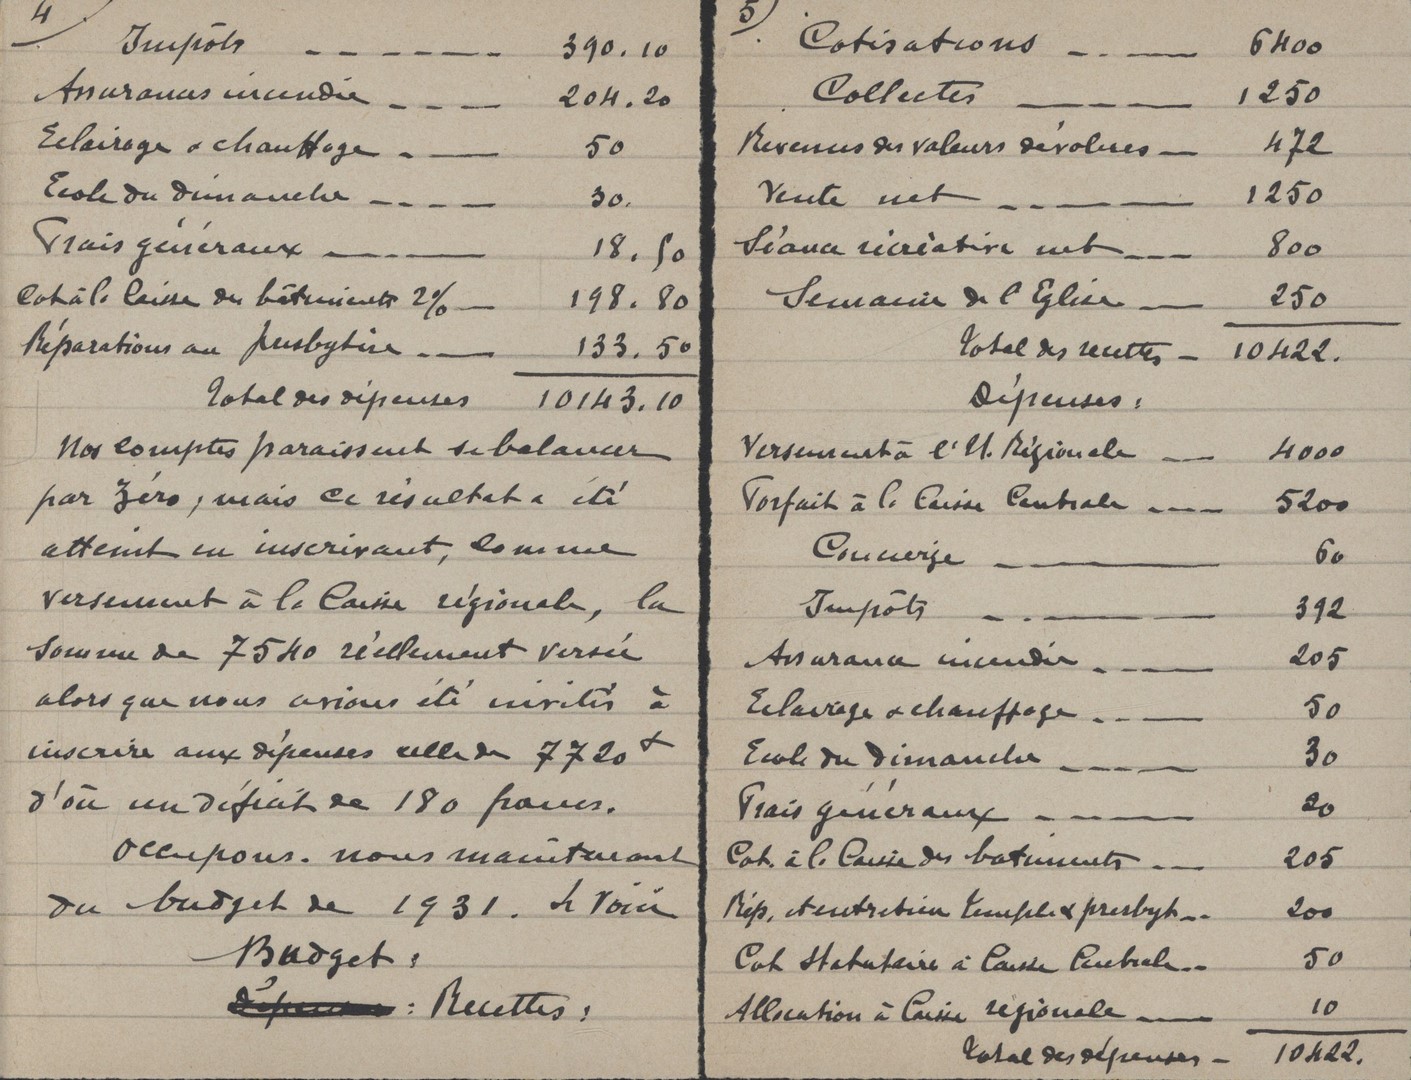 4)
Impôts _ _ _ _ _ 390.10
Assurances incendie _ _ _ 204.20
Eclairage & chauffage _ __ 50
Ecole du dimanche _ _ _ __ 30.
Frais généraux __ _ __ 18.50
Cot. à la Caisse des bâtiments 2% __ 198.80
Réparations au presbytère _ __ 133.50
Total des dépenses 10143.10
Nos comptes paraissent se balancer
par zéro, mais ce résultat a été
atteint en inscrivant, comme
versement à la Caisse régionale, la
somme de 7540 réellement versée
alors que nous avions été invités à
inscrire aux dépenses celle de 7720f
d'où un déficit de 180 francs.
Occupons-nous maintenant
du budget de 1931. Le voici
Budget :
Dépenses : Recettes :
5)
Cotisations _ _ __ 6400
Collectes __ _ __ 1250
Revenus des valeurs dévolues __ 472
Vente net _ _ __ 1250
Séance récréative net _ _ _ 800
Semaine de l'Eglise _ __ 250
Total des recettes _ 10422.
Dépenses :
Versement à l'U. Régionale _ __ 4000
Forfait à la Caisse Centrale _ _ _ 5200
Concierge _ _____ 60
Impôts _ . _____ 392
Assurance incendie _ _ __ 205
Eclairage & chauffage _ _ __ 50
Ecole du Dimanche _ _ _ __ 30
Frais généraux _ _ __ 20
Cot. à la Caisse des batiments _ __ 205
Rép. et entretien temple & presbyt _ _ 200
Cot Statutaire à Caisse Centrale _ _ 50
Allocation à Caisse régionale _ __ 10
Total des dépenses _ 10422.